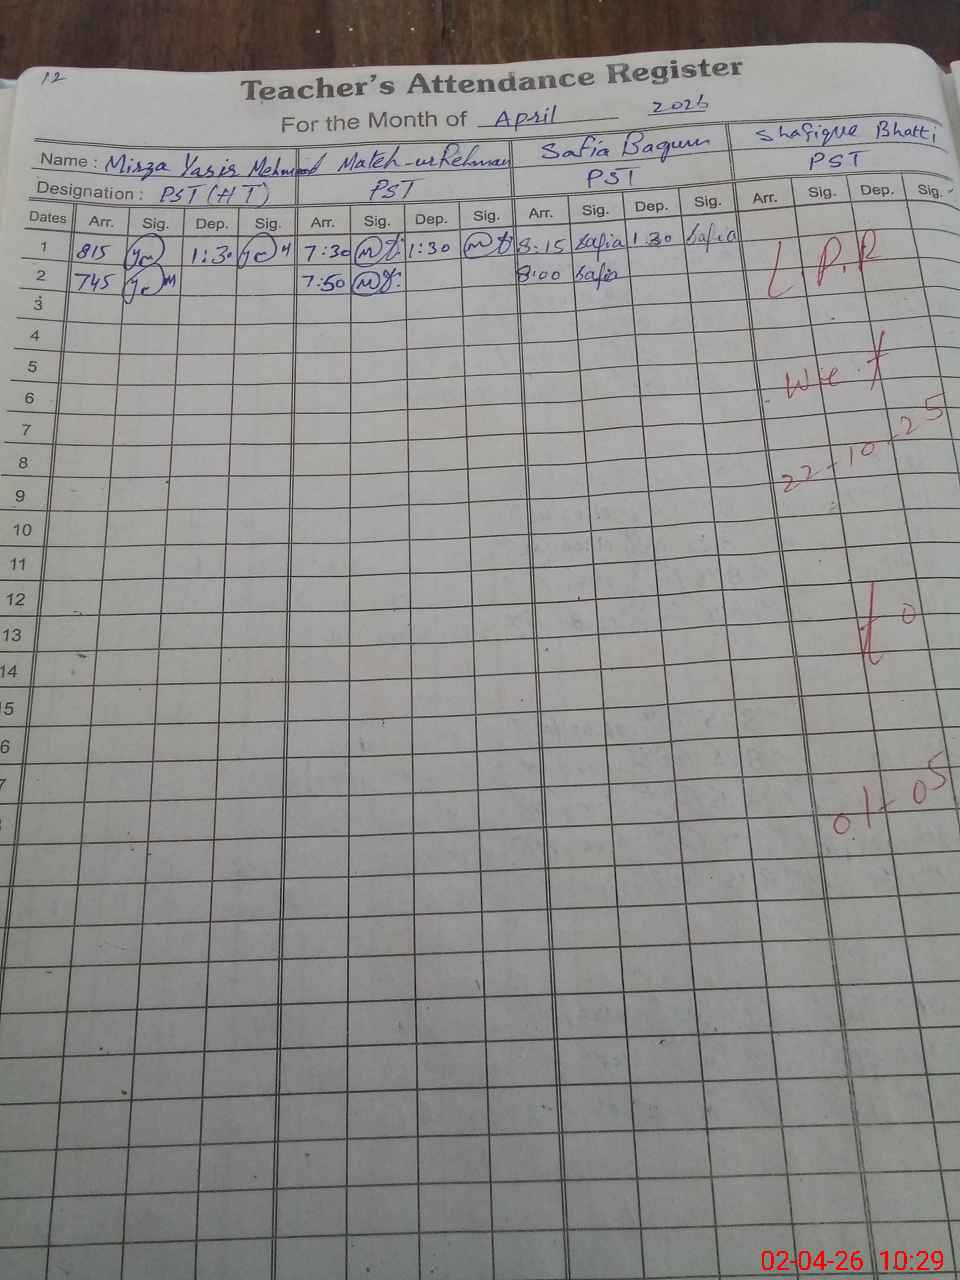 12
Teacher's Attendance Register
For the Month of April 2026
Name : Mirza Yasir Mehmood Mateh-ur Rehman Safia Baqum Shafique Bhatti
Designation : PST (HT) PST PST PST
Dates Arr. Sig. Dep. Sig. Arr. Sig. Dep. Sig. Arr. Sig. Dep. Sig. Arr. Sig. Dep. Sig.
1 815 1:30 7:30 1:30 8:15 Safia 1:30 Safia
2 745 7:50 8:00 Safia
L P.R
3
4
5
w.e.f
6
7
8
22-10-25
9
10
11
12
13
to
14
15
6
7
01-05
02-04-26 10:29